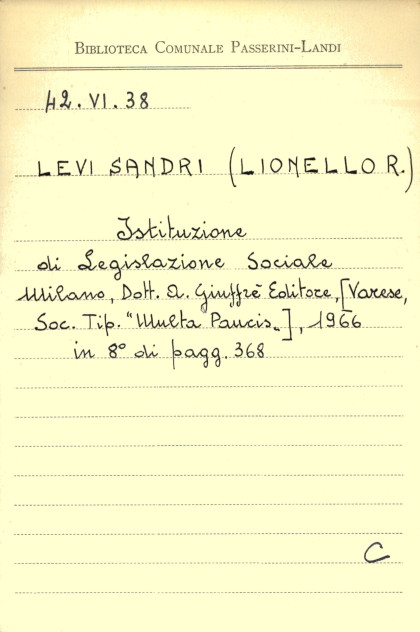 BIBLIOTECA COMUNALE PASSERINI-LANDI
42.VI.38
LEVI SANDRI (LIONELLO R.)
Istituzione
di Legislazione Sociale
Milano, Dott. A. Giuffrè Editore, [Varese,
Soc. Tip. "Multa Paucis"], 1966
in 8° di pagg. 368
C